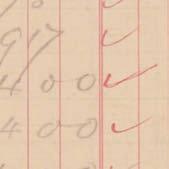 917 ✓
400 ✓
400 ✓